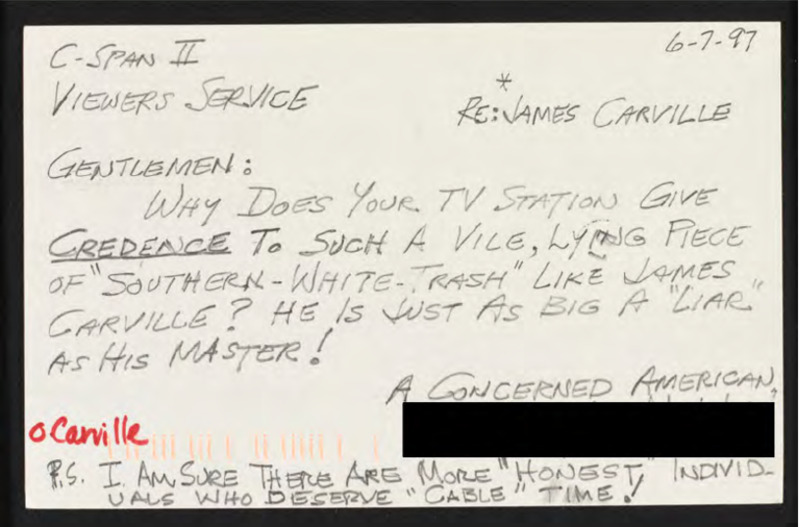 6-7-97
C-SPAN II
VIEWERS SERVICE
*
RE: JAMES CARVILLE
GENTLEMEN:
WHY DOES YOUR TV STATION GIVE
CREDENCE TO SUCH A VILE, LYING PIECE
OF "SOUTHERN-WHITE-TRASH" LIKE JAMES
CARVILLE? HE IS JUST AS BIG A "LIAR"
AS HIS MASTER!
A CONCERNED AMERICAN,
o Carville
P.S. I AM SURE THERE ARE MORE "HONEST," INDIVID-
UALS WHO DESERVE "CABLE" TIME!